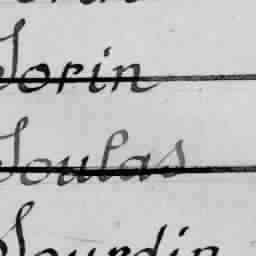 Sorin
Soulas
Sourdin